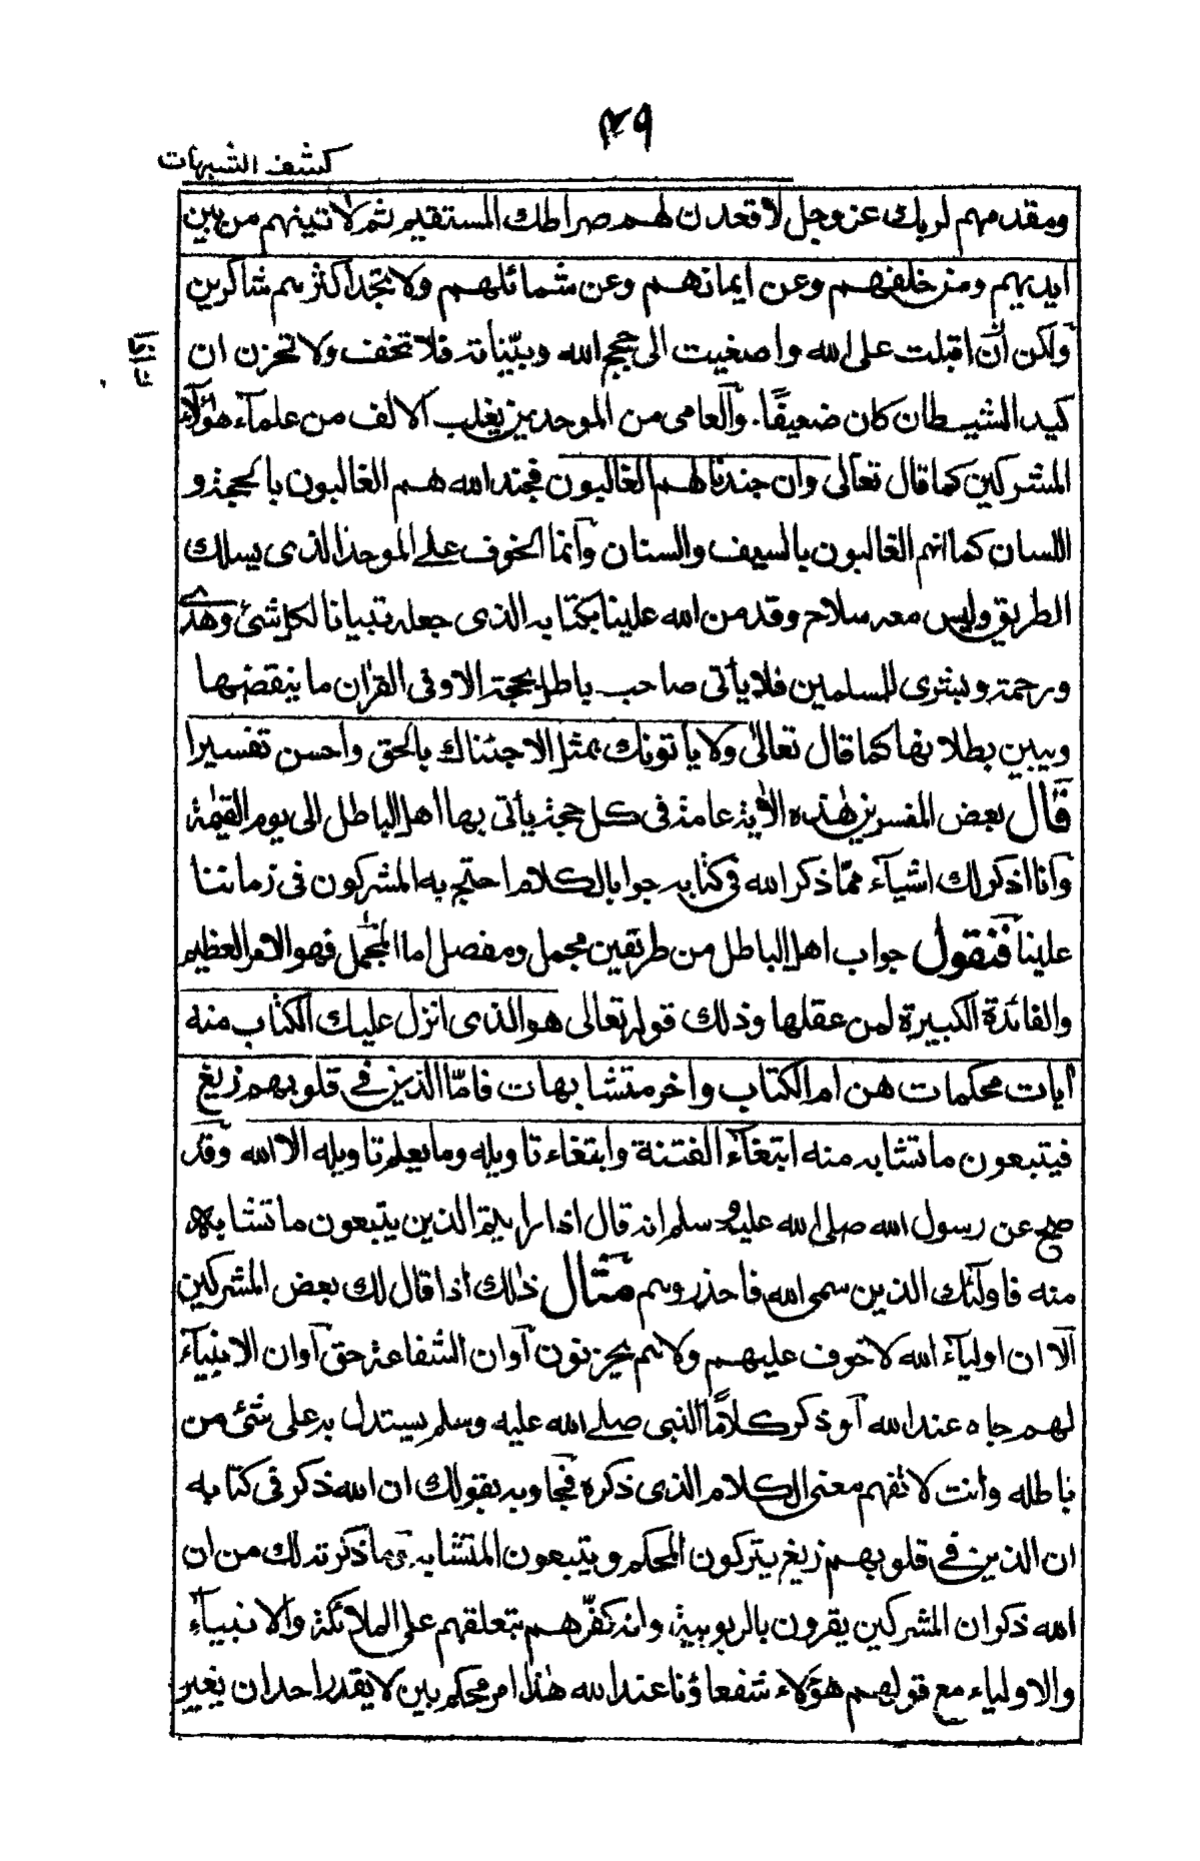 ٢٩
كشف الشبهات
ومقدمهم لربك عز وجل لاقعدن لهم صراطك المستقيم ثم لاتينهم من بين
ايديهم ومن خلفهم وعن ايمانهم وعن شمائلهم ولا تجد اكثرهم شاكرين
ولكن ان اقبلت على الله واصغيت الى حجج الله وبيّناته فلا تخف ولا تحزن ان
كيد الشيطان كان ضعيفًا. والعامى من الموحدين يغلب الالف من علماء هؤلاء
المشركين كما قال تعالى وان جندنا لهم الغالبون فجند الله هم الغالبون بالحجة و
اللسان كما انهم الغالبون بالسيف والسنان وانما الخوف على الموحد الذى يسلك
الطريق وليس معه سلاح وقد من الله علينا بكتابه الذى جعله تبيانا لكل شئ وهدى
ورحمة وبشرى للمسلمين فلا يأتى صاحب باطل بحجة الا وفى القران ما ينقضها
ويبين بطلانها كما قال تعالى ولا يأتونك بمثل الا جئناك بالحق واحسن تفسيرا
قال بعض المفسرين هذه الاية عامة فى كل حجة يأتى بها اهل الباطل الى يوم القيمة
وانا اذكر لك اشياء ممّا ذكر الله فى كتابه جوابا لكلام احتج به المشركون فى زماننا
علينا فنقول جواب اهل الباطل من طريقين مجمل ومفصل اما المجمل فهو الامر العظيم
والفائدة الكبيرة لمن عقلها وذلك قوله تعالى هو الذى انزل عليك الكتاب منه
ايات محكمات هن ام الكتاب واخر متشابهات فامّا الذين فى قلوبهم زيغ
فيتبعون ما تشابه منه ابتغاء الفتنة وابتغاء تاويله وما يعلم تاويله الا الله وقد
صح عن رسول الله صلى الله عليه وسلم انه قال اذا رايتم الذين يتبعون ما تشابه
منه فاولئك الذين سمى الله فاحذروهم مثال ذلك اذا قال لك بعض المشركين
الا ان اولياء الله لا خوف عليهم ولا هم يحزنون اوان الشفاعة حق اوان الانبياء
لهم جاه عند الله او ذكر كلامًا النبى صلى الله عليه وسلم يستدل به على شئ من
باطله وانت لا تفهم معنى الكلام الذى ذكره فجاوبه بقولك ان الله ذكر فى كتابه
ان الذين فى قلوبهم زيغ يتركون المحكم ويتبعون المتشابه وما ذكرته لك من ان
الله ذكر ان المشركين يقرون بالربوبية وانه كفّرهم بتعلقهم على الملائكة والانبياء
والاولياء مع قولهم هؤلاء شفعاؤنا عند الله هذا امر محكم بين لا يقدر احد ان يغير